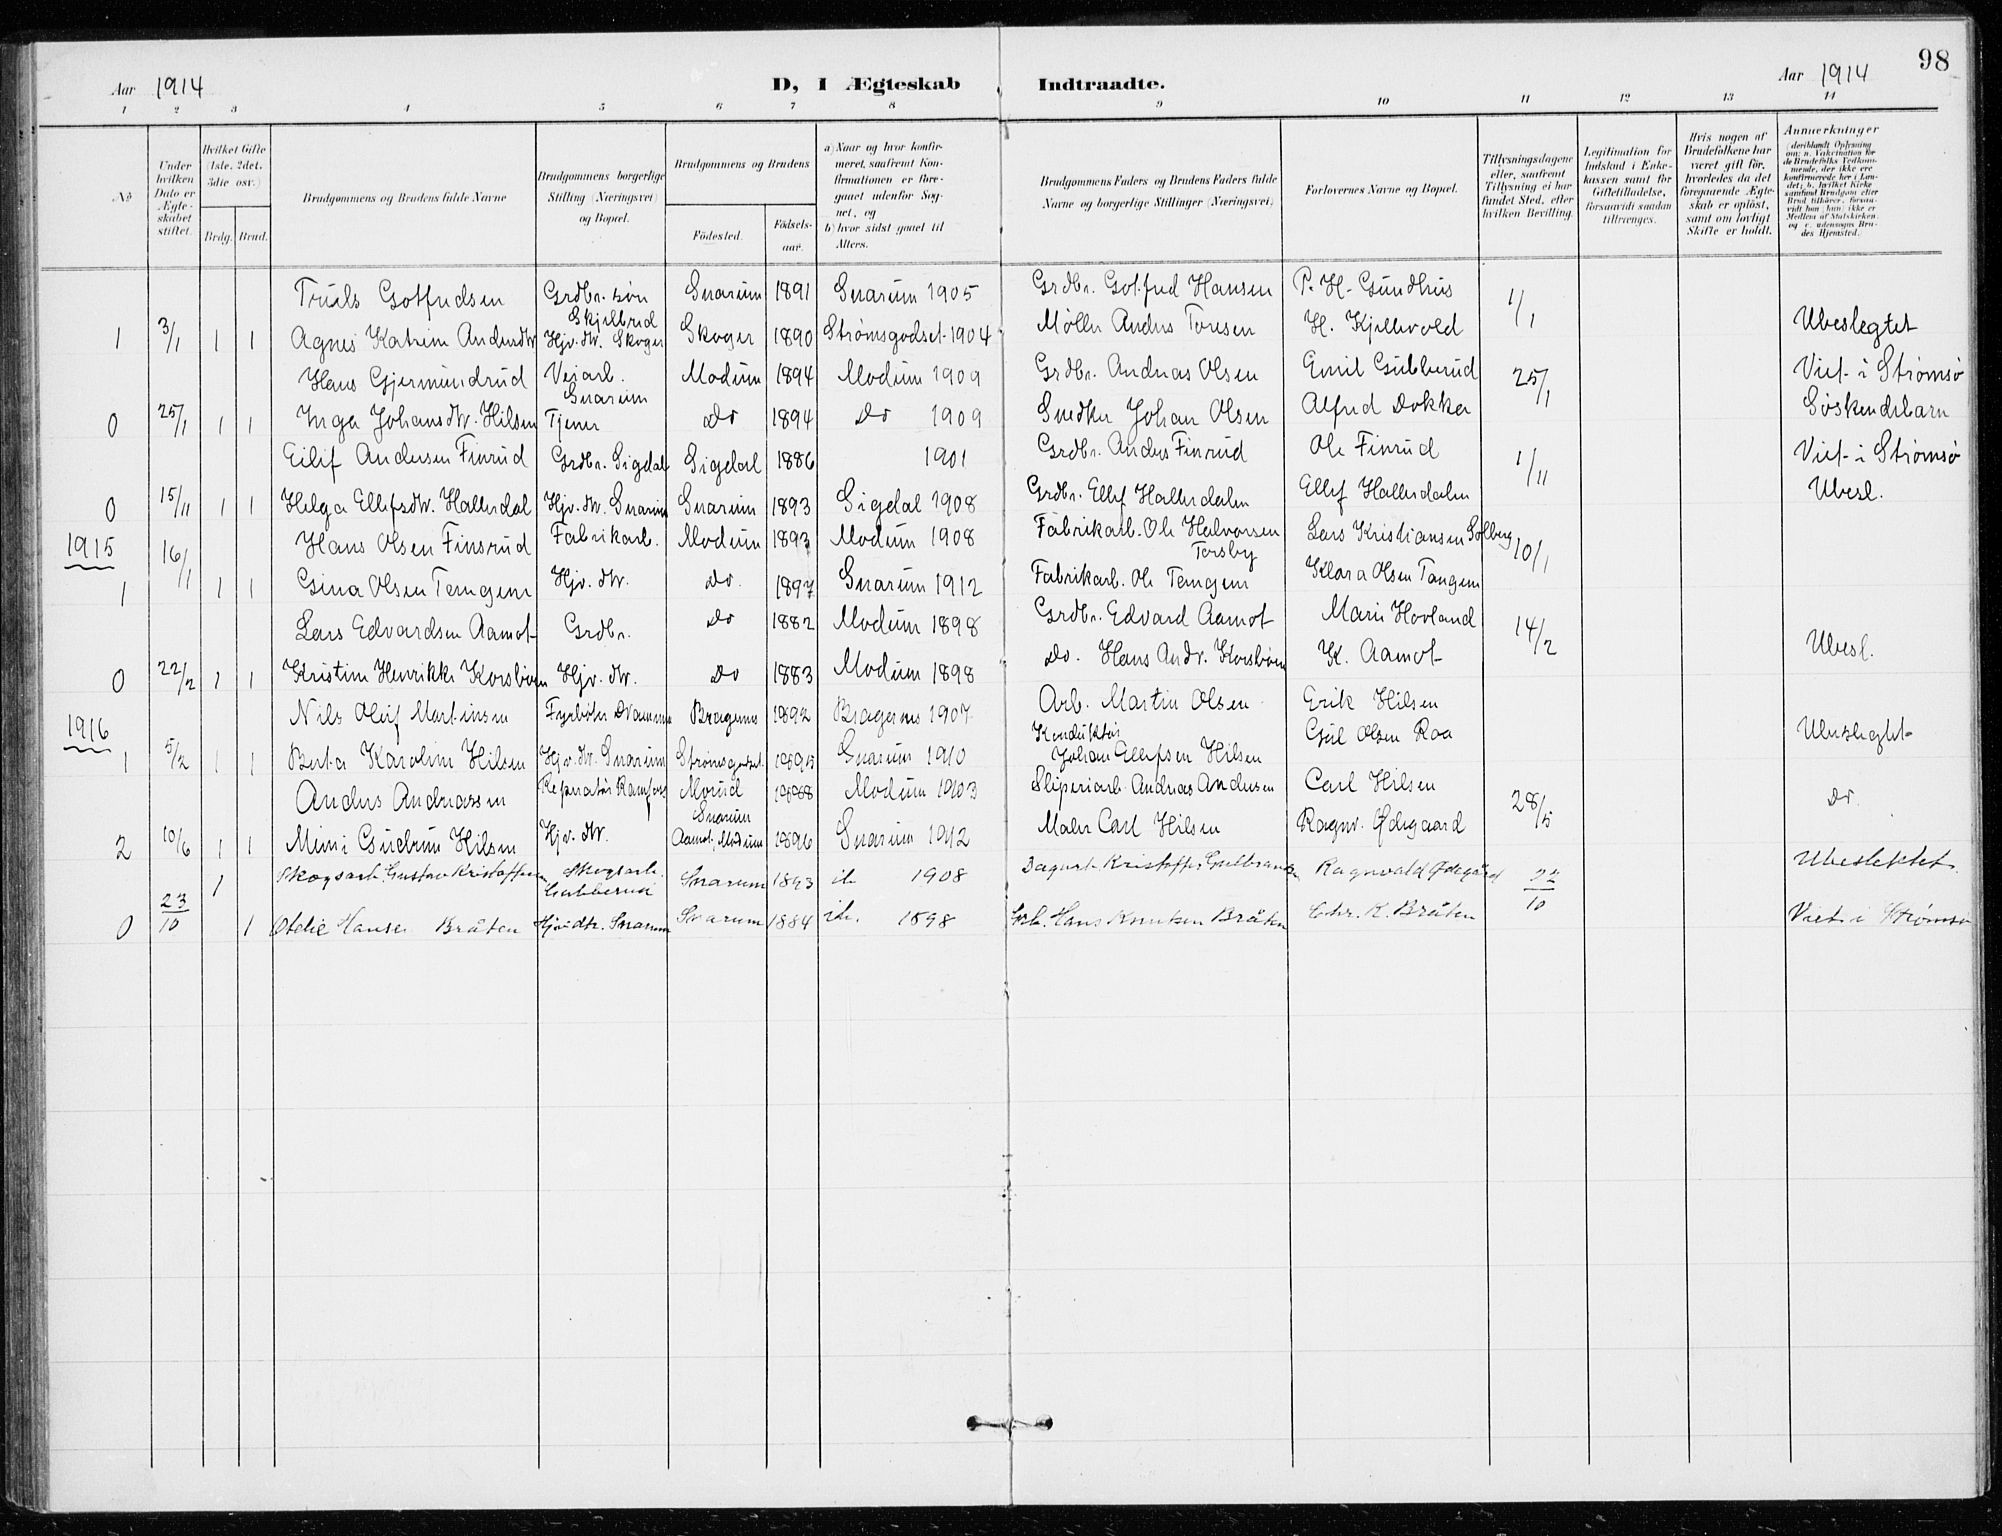 98
Aar 1914 D, I Ægteskab Indtraadte. Aar 1914
1 2 3 4 5 6 7 8 9 10 11 12 13 14
No
Under hvilken Dato er Ægteskabet stiftet.
Hvilket Gifte (1ste. 2det. 3die osv.)
Brdg. Brud.
Brudgommens og Brudens fulde Navne
Brudgommens borgerlige Stilling (Næringsvei) og Bopæl.
Brudgommens og Brudens
Födested. Födselsaar.
a) Naar og hvor konfirmeret, saafremt Konfirmationen er foregaaet udenfor Sognet, og
b) hvor sidst gaaet til Alters.
Brudgommens Faders og Brudens Faders fulde Navne og borgerlige Stillinger (Næringsvei)
Forlovernes Navne og Bopæl.
Tillysningsdagene eller, saafremt Tillysning ei har fundet Sted, efter hvilken Bevilling.
Legitimation for Indskud i Enkekassen samt for Giftetilladelse, forsaavidt saadan tiltrænges.
Hvis nogen af Brudefolkene har været gift för, hvorledes da det foregaaende Ægteskab er oplöst, samt om lovligt Skifte er holdt.
Anmerkninger
Truls Gotfredsen Grdbr. søn Skjelbred Snarum 1891 Snarum 1905 Grdbr. Gotfred Hansen P. H. Gundhus 1/1
1 3/1 1 1 Agnes Katrine Andersdtr Hjv. dtr. Skoger Skoger 1890 Strømsgodset 1904 Møller Anders Toresen H. Kjellevold Ubeslegtet
Hans Gjermundrud Veiarb. Snarum Modum 1894 Modum 1909 Grdbr. Andreas Olsen Emil Gubberud 25/1 Viet i Strømsø
0 25/1 1 1 Inga Johansdtr. Hilsen Tjener Do 1894 Do 1909 Snedker Johan Olsen Alfred Dokka Søskendebarn
Eilif Andersen Finrud Grdbr. Sigdal Sigdal 1886 1901 Grdbr. Anders Finrud Ole Finrud 1/11 Viet i Strømsø
0 15/11 1 1 Helga Ellefsdtr. Hallerdal Hjv. dtr. Snarum Snarum 1893 Sigdal 1908 Grdbr. Ellef Hallerdalen Ellef Hallerdalen Ubesl.
1915 16/1 Hans Olsen Finsrud Fabrikarb. Modum 1893 Modum 1908 Fabrikarb. Ole Halvorsen Torsby Lars Kristiansen Solberg 10/1
1 1 1 Gina Olsen Tangen Hjv. dtr. Do. 1897 Snarum 1912 Fabrikarb. Ole Tangen Klara Olsen Tangen
Lars Edvardsen Aamot Grdbr. Do 1882 Modum 1898 Grdbr. Edvard Aamot Marie Hovland 14/2
0 22/2 1 1 Kristine Henrikke Korsbøen Hjv. dtr. Do 1883 Modum 1898 Do. Hans Andr. Korsbøen K. Aamot Ubesl.
1916 Nils Oluf Martinsen Fyrbøter Drammen Bragernes 1892 Bragernes 1907 Arb. Martin Olsen Erik Hilsen
1 5/2 1 1 Berta Karoline Hilsen Hjv. dtr. Snarum Strømsgodset Snarum 1910 Konduktør Johan Ellefsen Hilsen Olsen Roa Ubeslegtet
Anders Andreassen Reparatør Ramfos Modum 1903 Sliperiarb. Andreas Andersen Carl Hilsen 28/5 Do.
2 10/6 1 1 Mimi Gudrun Hilsen Hjv. dtr. Snarum Aamot, Modum 1896 Snarum 1912 Maler Carl Hilsen Ragnv. Ødegaard
Skogsarb. Gustav Kristoffersen Skogsarb. Gubberud Snarum 1893 ib. 1908 Kristoffer Gulbrandsen Ragnvald Ødegård 22/10 Ubeslektet.
0 23/10 1 1 Otelie Hansen Bråten Hjv. dtr. Snarum Snarum 1884 ib. 1898 Hans Knutsen Bråten Chr. K. Bråten Viet i Strømsø